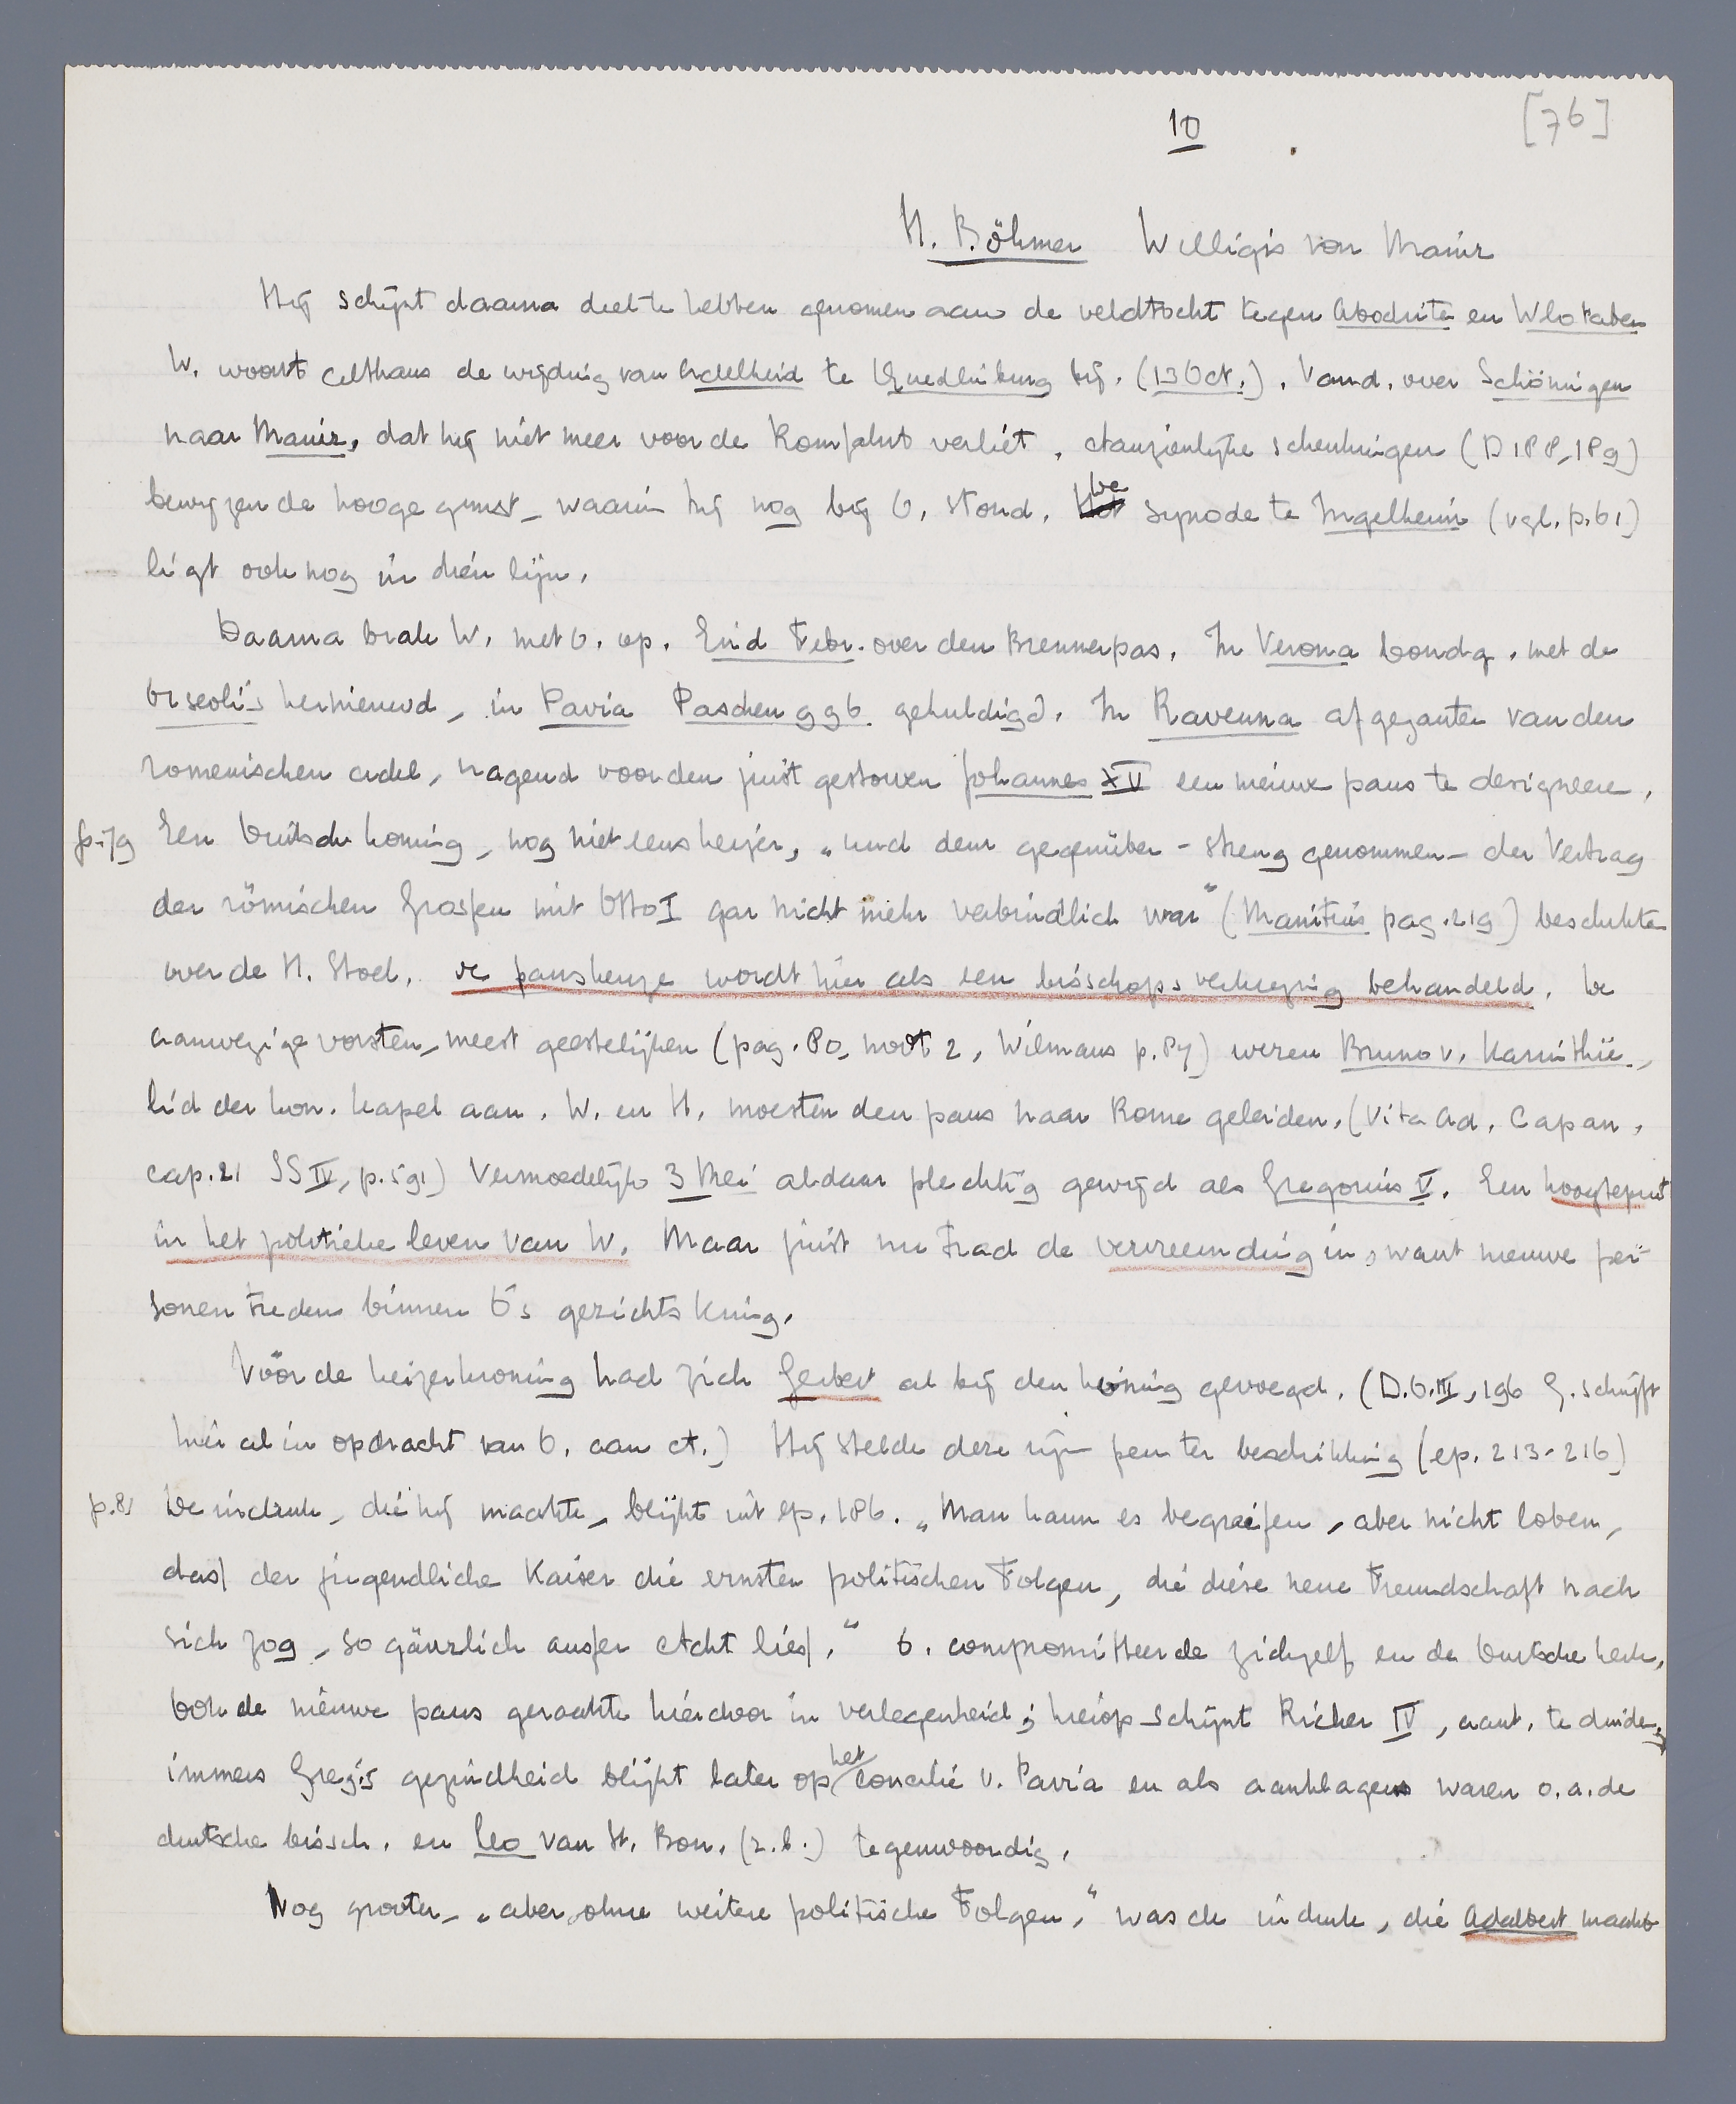 10
[76]
H. Böhmer Willigis von Mainz
Hij schijnt daarna deel te hebben genomen aan de veldtocht tegen Abodriten en Wlotaben
W. woont althans de wijding van Adelheid te Quedlinburg bij. (13 Oct.). Vand. over Schöningen
naar Mainz, dat hij niet meer voor de Romfahrt verliet. Aanzienlijke schenkingen (D 188, 189)
bewijzen de hooge gunst, waarin hij nog bij O. stond. De synode te Ingelheim (vgl. p. 61)
ligt ook nog in dien lijn.
Daarna brak W. met O. op. Eind Febr. over den Brennerpas. In Verona bondg. met de
Orseoli's hernieuwd, in Pavia Paschen 996 gehuldigd. In Ravenna afgezanten van den
romeinschen adel, vragend voor den juist gestorven Johannes XV een nieuwe paus te designeeren.
p. 79 Een Duitsche koning, nog niet eens keizer, „und dem gegenüber - streng genommen - der Vertrag
der römischen Grossen mit Otto I gar nicht mehr verbindlich war" (Manitius pag. 219) beschikte
over de H. Stoel. De pauskeuze wordt hier als een bisschopsverkiezing behandeld. De
aanwezige vorsten, meest geestelijken (pag. 80, noot 2, Wilmans p. 84) wezen Bruno v. Karinthië,
lid der kon. kapel aan. W. en H. moesten den paus naar Rome geleiden. (Vita Ad. Capan.
cap. 21 SS IV, p. 591) Vermoedelijk 3 Mei aldaar plechtig gewijd als Gregorius V. Een hoogtepunt
in het politieke leven van W. Maar juist nu trad de vervreemding in, want nieuwe per-
sonen treden binnen O's gezichtskring.
Vóór de keizerkroning had zich Gerbert al bij den koning gevoegd. (D.O.III, 196 G. schrijft
hier al in opdracht van O. aan A.) Hij stelde deze zijn pen ter beschikking (ep. 213-216)
p. 81 De indruk, die hij maakte, blijkt uit ep. 186. „Man kann es begreifen, aber nicht loben,
dass der jugendliche Kaiser die ernsten politischen Folgen, die diese neue Freundschaft nach
sich zog, so gänzlich ausser Acht liess." O. compromitteerde zichzelf en de Duitsche kerk.
Ook de nieuwe paus geraakte hierdoor in verlegenheid; hierop schijnt Richer IV, aant. te duiden,
immers Greg's gezindheid blijkt later op het concilie v. Pavia en als aanklagers waren o.a. de
duitsche bissch. en Leo van St. Bon. (z.b.) tegenwoordig.
Nog grooter, „aber ohne weitere politische Folgen," was de indruk, die Adalbert maakte